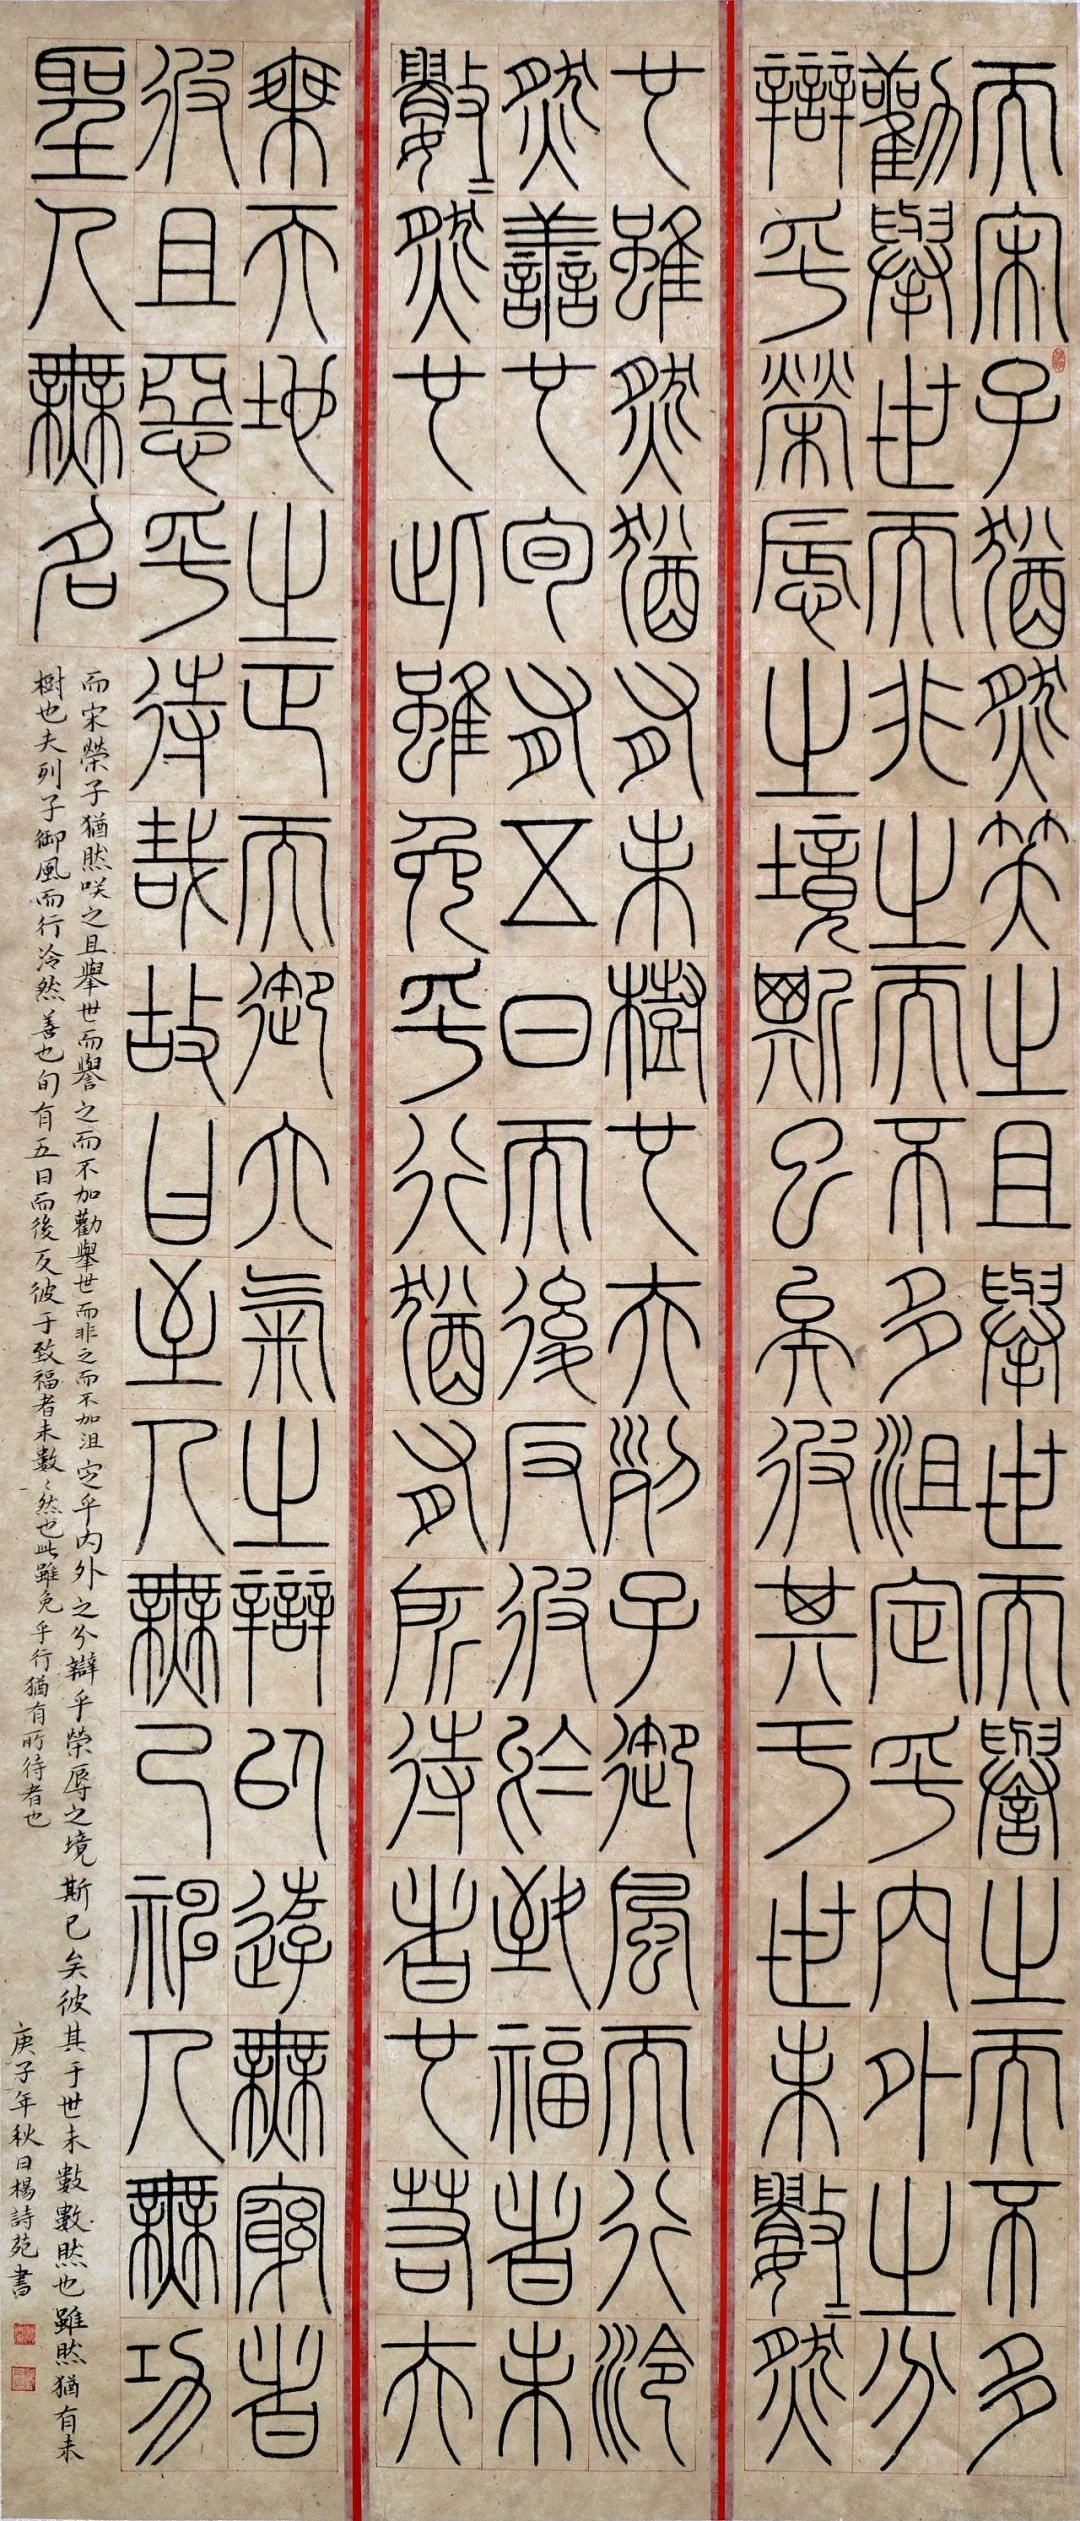 而宋子猶然笑之且舉世而譽之而不多
勸舉世而非之而不多沮定乎內外之分
辯乎榮辱之境斯已矣彼其于世未數=然
也雖然猶有未樹也夫列子御風而行泠
然善也旬有五日而後反彼於致福者未
數=然也此雖免乎行猶有所待者也若夫
乘天地之正而御六氣之辯以遊無窮者
彼且惡乎待哉故曰至人無己神人無功
聖人無名
而宋榮子猶然咲之且舉世而譽之而不加勸舉世而非之而不加沮定乎內外之分辯乎榮辱之境斯已矣彼其于世未數數然也雖然猶有未
樹也夫列子御風而行泠然善也旬有五日而後反彼于致福者未數々然也此雖免乎行猶有所待者也
庚子年秋日楊詩苑書